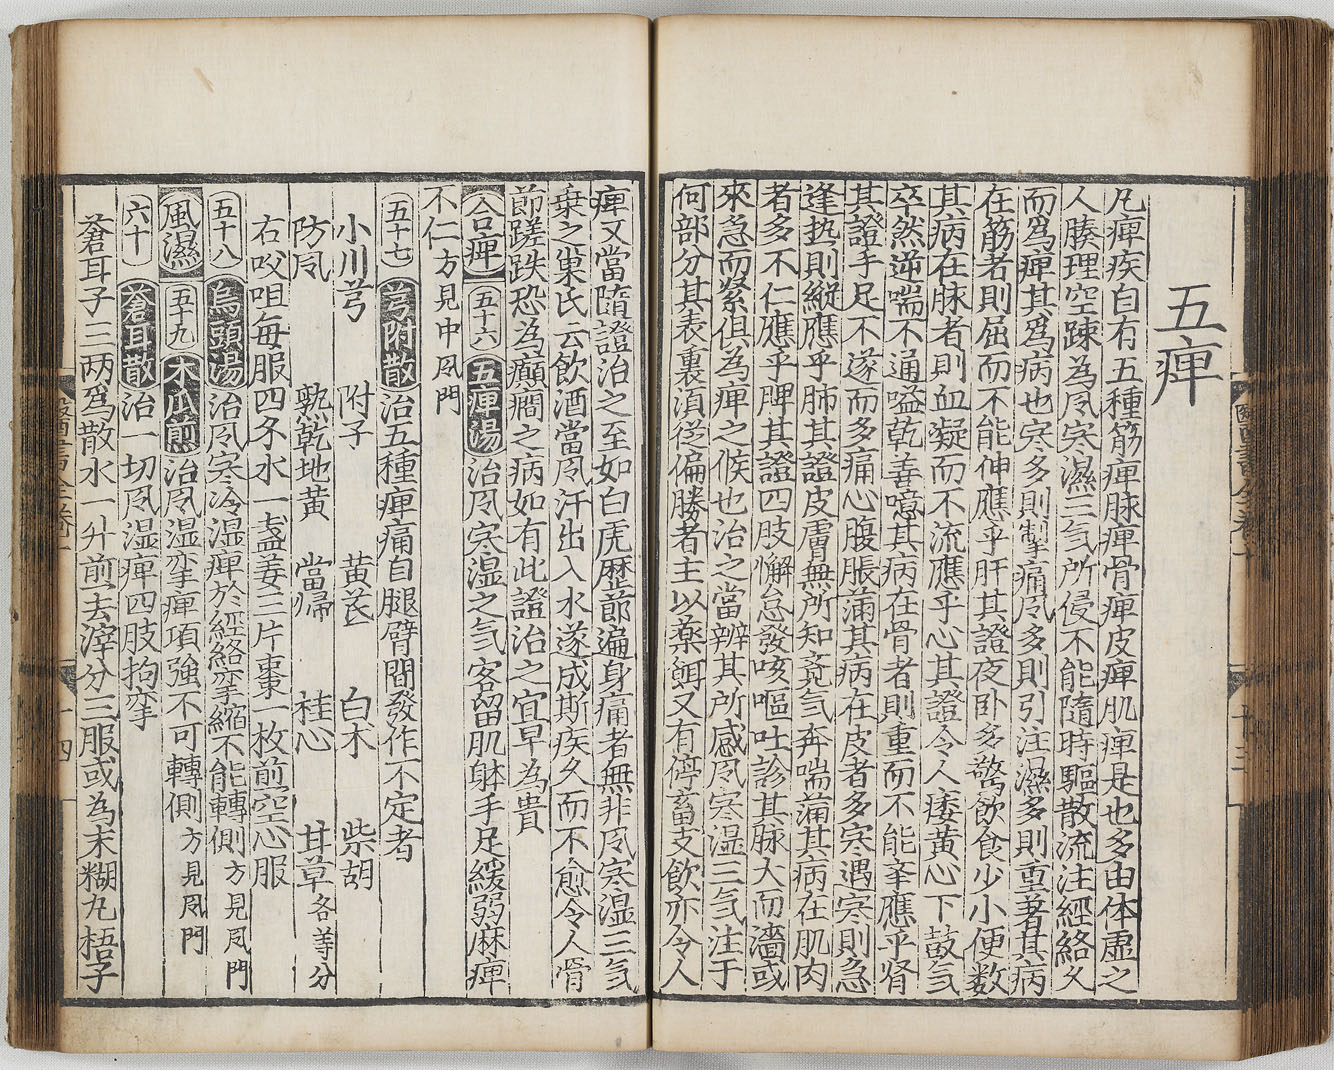 五痺
凡痺疾自有五種筋痺脉痺骨痺皮痺肌痺是也多由体虚之
人腠理空踈為凮寒濕三气所侵不能隨時驅散流注經絡久
而爲痺其爲病也寒多則掣痛凮多則引注濕多則重著其病
在筋者則屈而不能伸應乎肝其證夜卧多驚飲食少小便数
其病在脉者則血凝而不流應乎心其證令人痿黄心下鼓气
卒然逆喘不通嗌乾善噫其病在骨者則重而不能峯應乎肾
其證手足不遂而多痛心腹脹蒲其病在皮者多寒遇寒則急
逢热則縱應乎肺其證皮膚無所知覔气奔喘蒲其病在肌肉
者多不仁應乎脾其證四肢懈怠發咳嘔吐診其脉大而濇或
來急而緊俱為痺之候也治之當辨其所感凮寒湿三气注于
何部分其表裏湏從偏勝者主以藥餌又有停畜支飲亦令人
痺又當隨證治之至如白虎歷節遍身痛者無非凮寒湿三气
乗之巢氏云飲酒當凮汗出入水遂成斯疾久而不愈令人骨
節蹉跌恐為癲癎之病如有此證治之宜早為貴
合痺 五十六 五痺湯 治凮寒湿之气客留肌躰手足緩弱麻痺
不仁方見中凮門
五十七 芎附散 治五種痺痛自腿臂間發作不定者
小川芎 附子 黄茋 白术 柴胡
防凮 熟乾地黄 當帰 桂心 甘草各等分
右㕮咀每服四夂水一盞姜三片棗一枚煎空心服
五十八 烏頭湯 治凮寒冷湿痺於經絡挛縮不能轉側方見凮門
風濕 五十九 木瓜煎 治凮湿挛痺項強不可轉側方見凮門
六十 蒼耳散 治一切凮湿痺四肢拘挛
蒼耳子三两爲散水一升煎去滓分三服或為末糊丸梧子